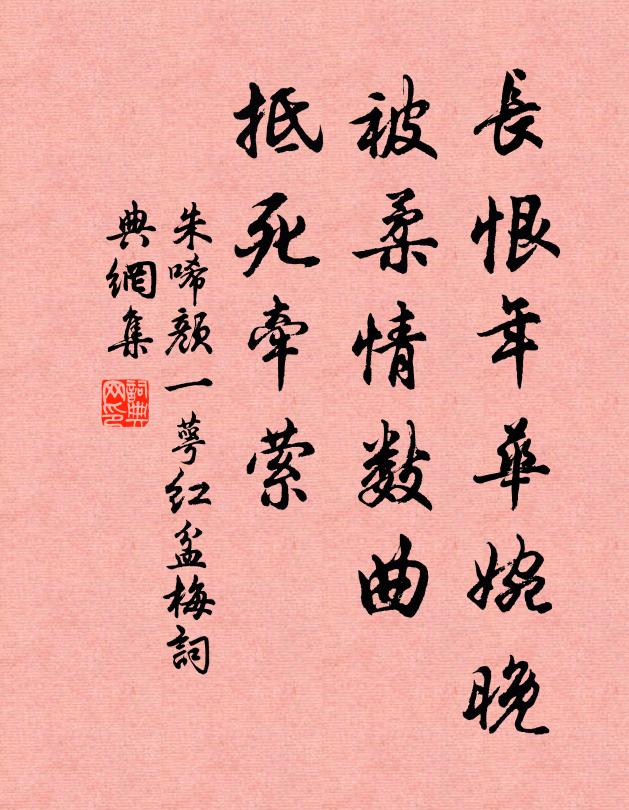 長恨年華婉晚
被柔情數曲
抵死牽縈
朱晞顏一萼紅盆梅詞
典網集
詞典網印